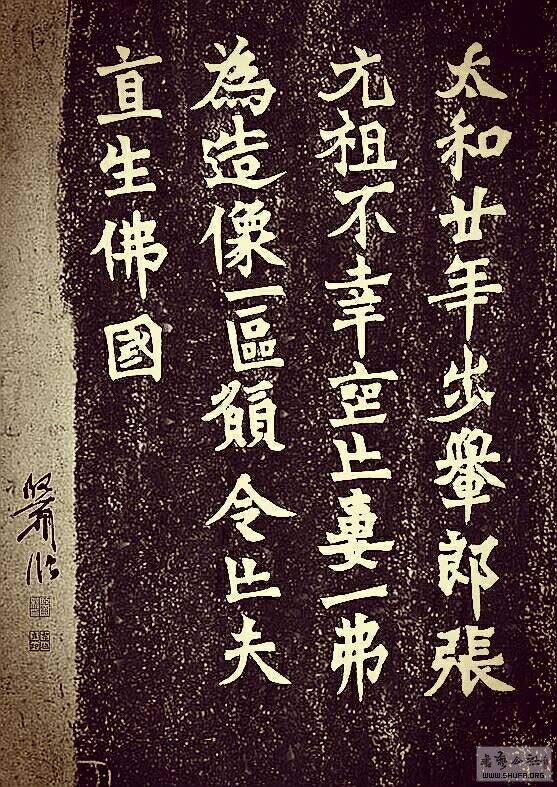 太和廿年步轝郎張
元祖不幸喪亡妻一弗
為造像一區願令亡夫
直生佛國
WWW.SHUFA.ORG